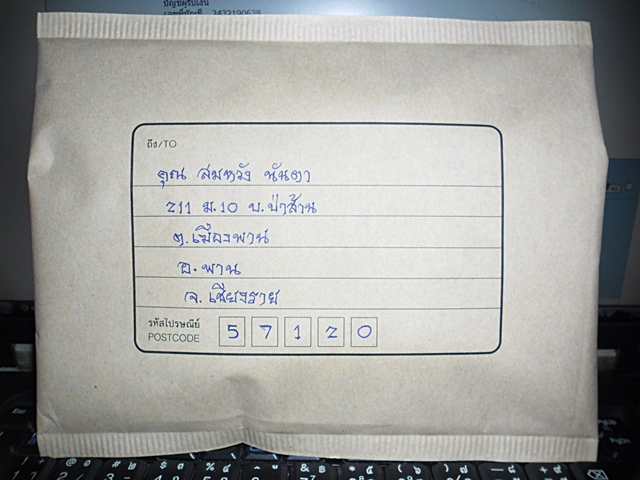 บัญชีผู้รับเงิน
เลขที่บัญชี 3432190638
ถึง/TO
คุณ สมหวัง นันตา
211 ม.10 บ.ป่าส้าน
ต.เมืองพาน
อ.พาน
จ.เชียงราย
รหัสไปรษณีย์
POSTCODE 57120